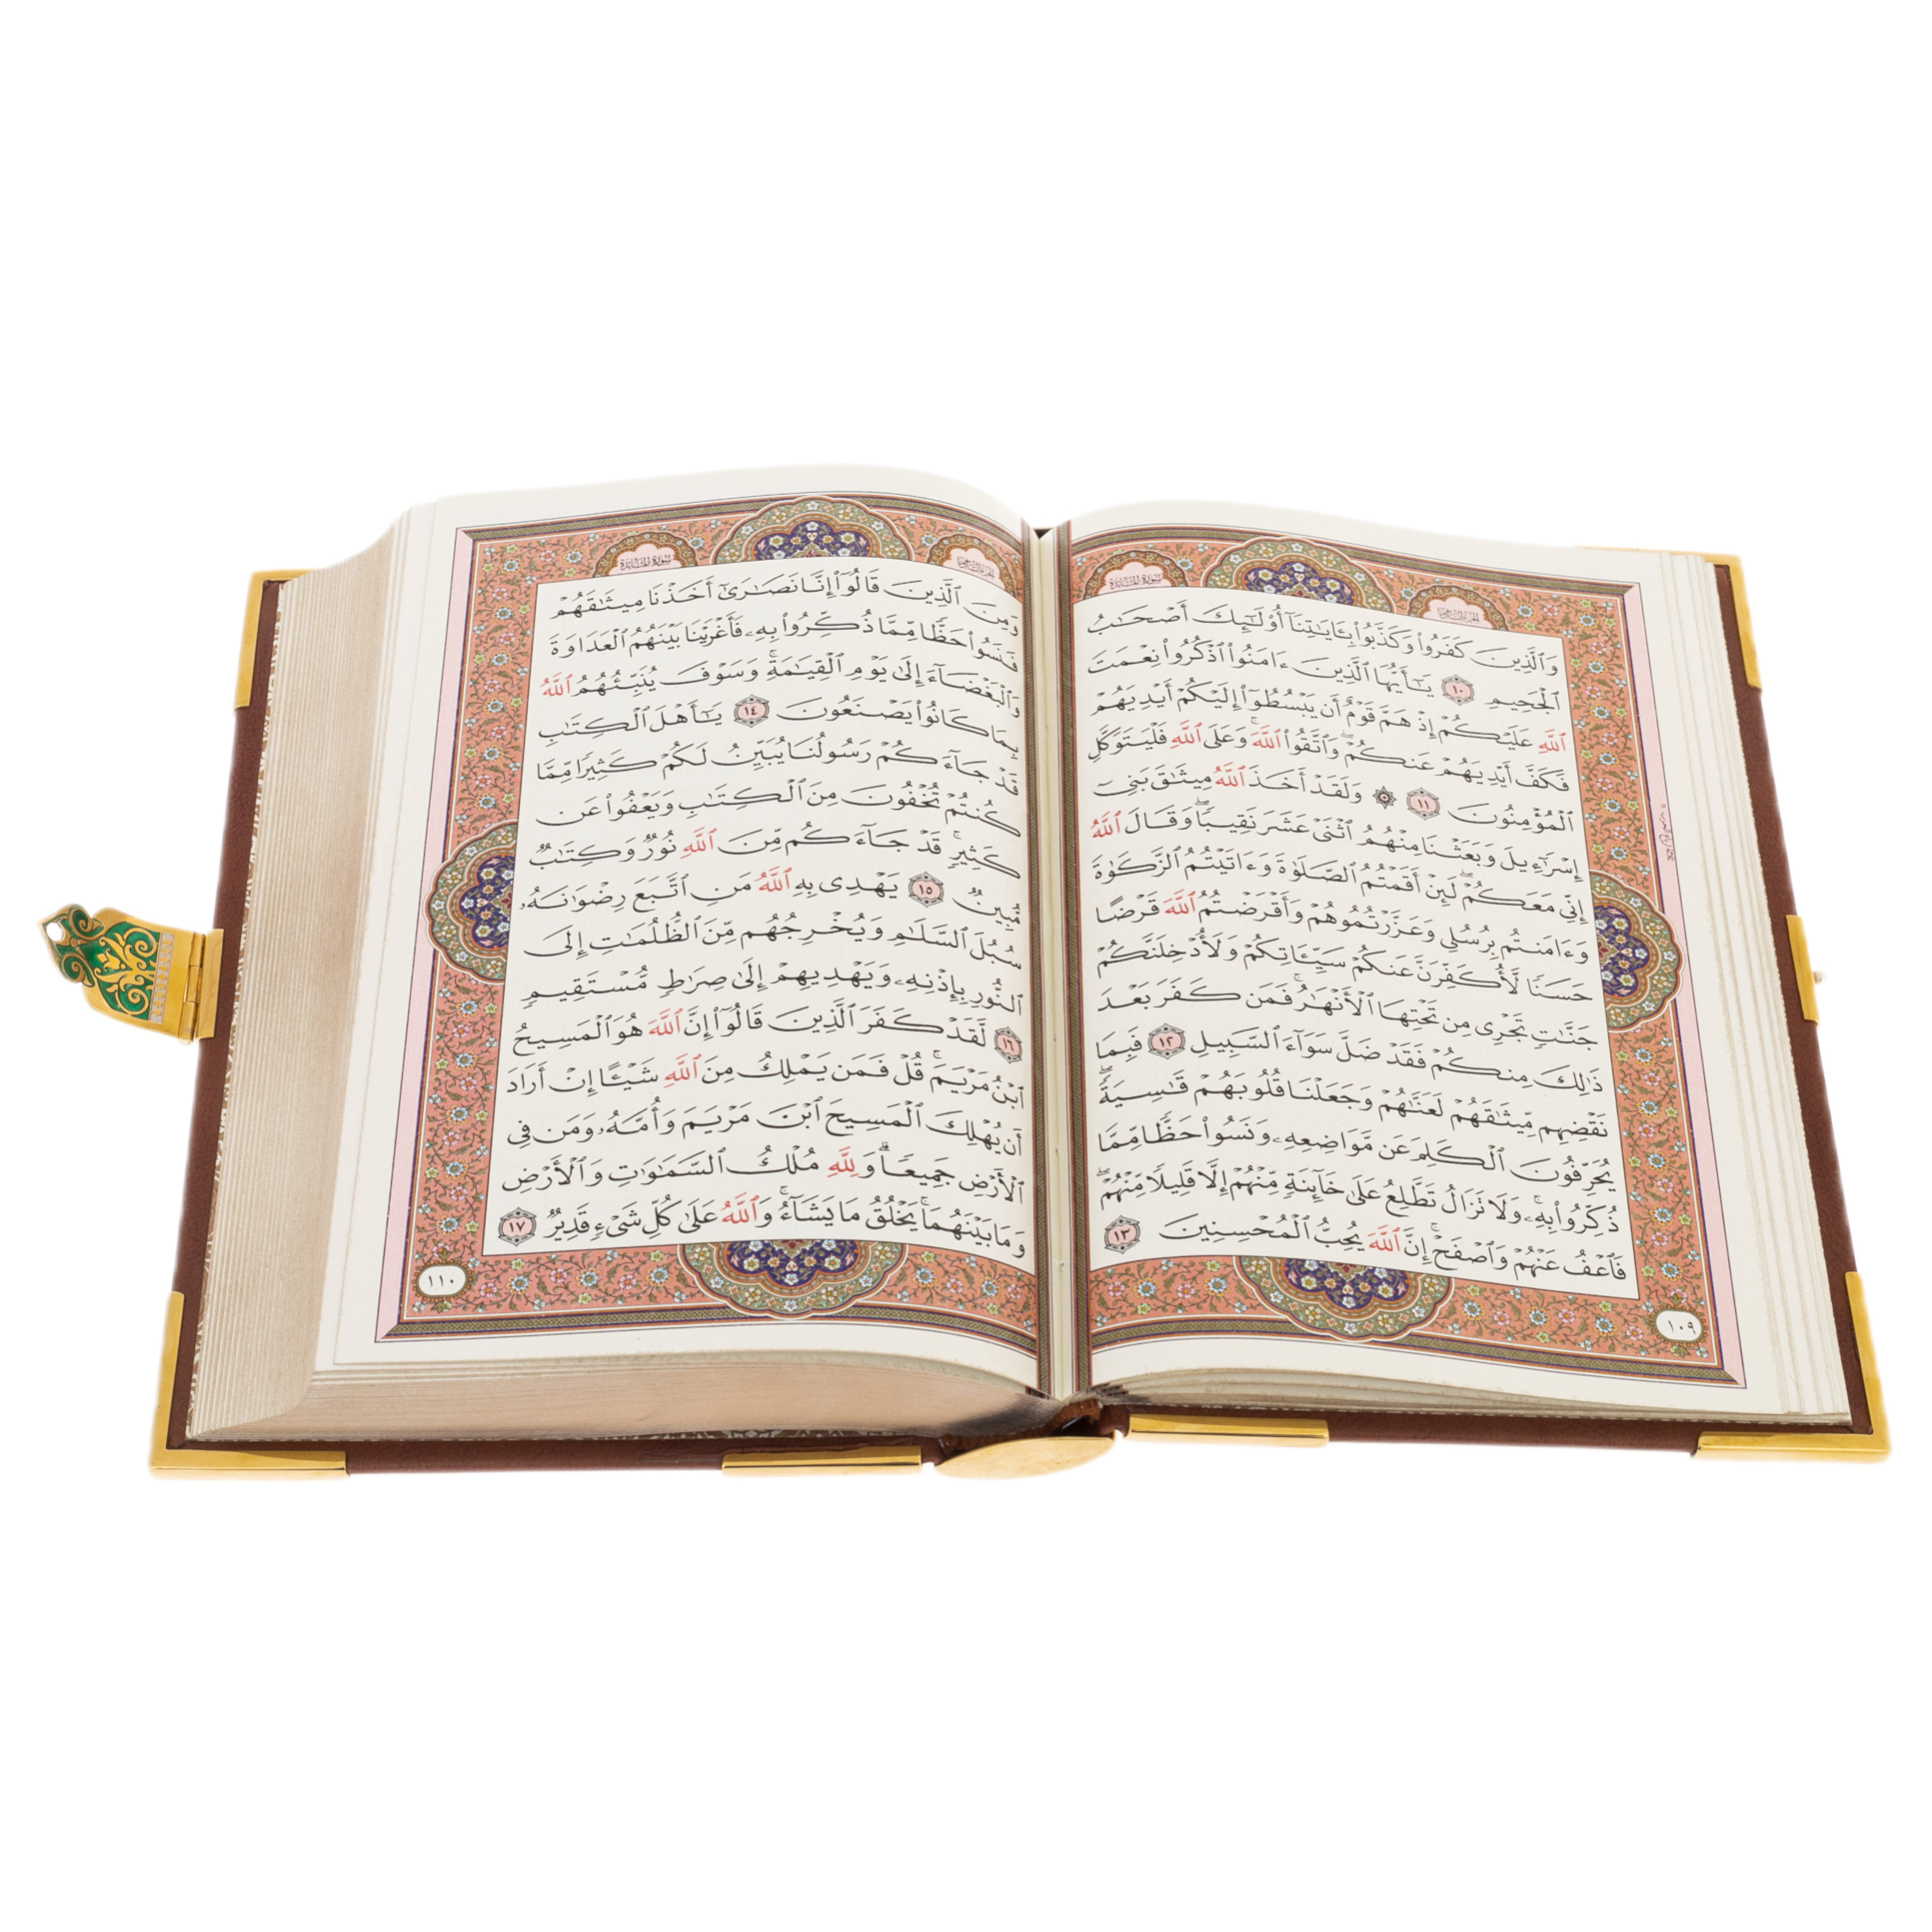 سورة المائدة
وَٱلَّذِينَ كَفَرُوا۟ وَكَذَّبُوا۟ بِـَٔايَـٰتِنَآ أُو۟لَـٰٓئِكَ أَصْحَـٰبُ
ٱلْجَحِيمِ ١٠ يَـٰٓأَيُّهَا ٱلَّذِينَ ءَامَنُوا۟ ٱذْكُرُوا۟ نِعْمَتَ
ٱللَّهِ عَلَيْكُمْ إِذْ هَمَّ قَوْمٌ أَن يَبْسُطُوٓا۟ إِلَيْكُمْ أَيْدِيَهُمْ
فَكَفَّ أَيْدِيَهُمْ عَنكُمْ ۖ وَٱتَّقُوا۟ ٱللَّهَ ۚ وَعَلَى ٱللَّهِ فَلْيَتَوَكَّلِ
ٱلْمُؤْمِنُونَ ١١ ۞ وَلَقَدْ أَخَذَ ٱللَّهُ مِيثَـٰقَ بَنِىٓ
إِسْرَٰٓءِيلَ وَبَعَثْنَا مِنْهُمُ ٱثْنَىْ عَشَرَ نَقِيبًا ۖ وَقَالَ ٱللَّهُ
إِنِّى مَعَكُمْ ۖ لَئِنْ أَقَمْتُمُ ٱلصَّلَوٰةَ وَءَاتَيْتُمُ ٱلزَّكَوٰةَ
وَءَامَنتُم بِرُسُلِى وَعَزَّرْتُمُوهُمْ وَأَقْرَضْتُمُ ٱللَّهَ قَرْضًا
حَسَنًا لَّأُكَفِّرَنَّ عَنكُمْ سَيِّـَٔاتِكُمْ وَلَأُدْخِلَنَّكُمْ
جَنَّـٰتٍ تَجْرِى مِن تَحْتِهَا ٱلْأَنْهَـٰرُ ۚ فَمَن كَفَرَ بَعْدَ
ذَٰلِكَ مِنكُمْ فَقَدْ ضَلَّ سَوَآءَ ٱلسَّبِيلِ ١٢ فَبِمَا
نَقْضِهِم مِّيثَـٰقَهُمْ لَعَنَّـٰهُمْ وَجَعَلْنَا قُلُوبَهُمْ قَـٰسِيَةً ۖ
يُحَرِّفُونَ ٱلْكَلِمَ عَن مَّوَاضِعِهِۦ ۙ وَنَسُوا۟ حَظًّا مِّمَّا
ذُكِّرُوا۟ بِهِۦ ۚ وَلَا تَزَالُ تَطَّلِعُ عَلَىٰ خَآئِنَةٍ مِّنْهُمْ إِلَّا قَلِيلًا مِّنْهُمْ ۖ
فَٱعْفُ عَنْهُمْ وَٱصْفَحْ ۚ إِنَّ ٱللَّهَ يُحِبُّ ٱلْمُحْسِنِينَ ١٣
١٠٩
سورة المائدة
وَمِنَ ٱلَّذِينَ قَالُوٓا۟ إِنَّا نَصَـٰرَىٰٓ أَخَذْنَا مِيثَـٰقَهُمْ
فَنَسُوا۟ حَظًّا مِّمَّا ذُكِّرُوا۟ بِهِۦ فَأَغْرَيْنَا بَيْنَهُمُ ٱلْعَدَاوَةَ
وَٱلْبَغْضَآءَ إِلَىٰ يَوْمِ ٱلْقِيَـٰمَةِ ۚ وَسَوْفَ يُنَبِّئُهُمُ ٱللَّهُ
بِمَا كَانُوا۟ يَصْنَعُونَ ١٤ يَـٰٓأَهْلَ ٱلْكِتَـٰبِ
قَدْ جَآءَكُمْ رَسُولُنَا يُبَيِّنُ لَكُمْ كَثِيرًا مِّمَّا
كُنتُمْ تُخْفُونَ مِنَ ٱلْكِتَـٰبِ وَيَعْفُوا۟ عَن
كَثِيرٍ ۚ قَدْ جَآءَكُم مِّنَ ٱللَّهِ نُورٌ وَكِتَـٰبٌ
مُّبِينٌ ١٥ يَهْدِى بِهِ ٱللَّهُ مَنِ ٱتَّبَعَ رِضْوَٰنَهُۥ
سُبُلَ ٱلسَّلَـٰمِ وَيُخْرِجُهُم مِّنَ ٱلظُّلُمَـٰتِ إِلَى
ٱلنُّورِ بِإِذْنِهِۦ وَيَهْدِيهِمْ إِلَىٰ صِرَٰطٍ مُّسْتَقِيمٍ
١٦ لَّقَدْ كَفَرَ ٱلَّذِينَ قَالُوٓا۟ إِنَّ ٱللَّهَ هُوَ ٱلْمَسِيحُ
ٱبْنُ مَرْيَمَ ۚ قُلْ فَمَن يَمْلِكُ مِنَ ٱللَّهِ شَيْـًٔا إِنْ أَرَادَ
أَن يُهْلِكَ ٱلْمَسِيحَ ٱبْنَ مَرْيَمَ وَأُمَّهُۥ وَمَن فِى
ٱلْأَرْضِ جَمِيعًا ۗ وَلِلَّهِ مُلْكُ ٱلسَّمَـٰوَٰتِ وَٱلْأَرْضِ
وَمَا بَيْنَهُمَا ۚ يَخْلُقُ مَا يَشَآءُ ۚ وَٱللَّهُ عَلَىٰ كُلِّ شَىْءٍ قَدِيرٌ ١٧
١١٠